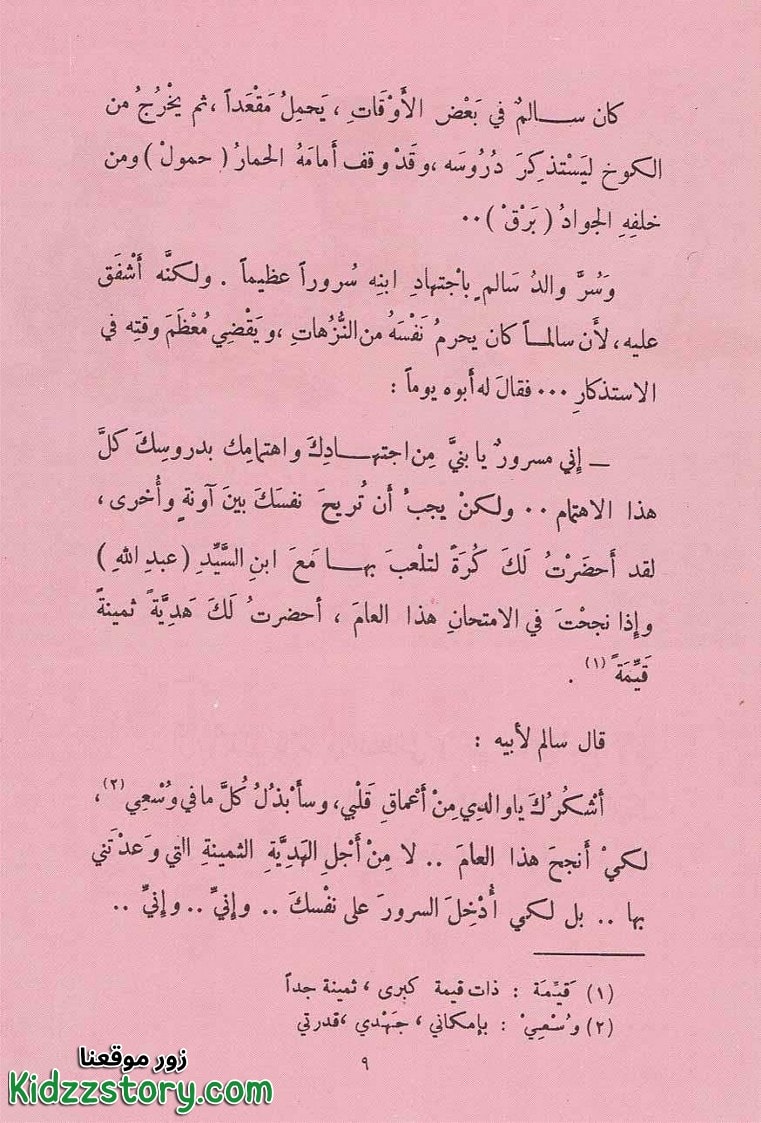 كان سالمٌ في بَعْض الأَوْقَاتِ ، يَحمِلُ مَقْعَداً ،ثم يخْرُجُ من
الكوخ ليَسْتذكِرَ دُرُوسَه ،وقَدْ وقف أمامَهُ الحمارُ ( حمولْ ) ومن
خلفِهِ الجوادُ ( بَرْقْ ) ٠٠
وَسُرَّ والدُ سَالمٍ بأجتهادِ ابنِه سُروراً عظيماً . ولكنَّه أَشْفَق
عليه، لأَن سالمـاً كان يحرمُ نَفْسَهُ من النُّزُهاتِ ،ويَقْضِي مُعْظَمَ وقتِه في
الاستذكارِ ٠٠٠ فقالَ له أبوه يوماً :
ــ إِني مسرورٌ يا بنيَّ مِن اجتهـادِكَ واهتمامِك بدروسِكَ كلَّ
هذا الاهتمام ٠٠ ولكنْ يجبُ أَن تُريحَ نفسَكَ بينَ آونةٍ وأُخرى ،
لقد أَحضَرْتُ لَكَ كُرَةً لتلْعبَ بهـا مَعَ ابنِ السَّيِّدِ ( عبدِ اللهِ )
وإِذا نجحْتَ في الامتحانِ هذا العامَ ، أحضرتُ لَكَ هَدِيَّةً ثمينةً
قَيِّمَةً (١) .
قال سالم لأبيه :
أَشْكُرُكَ ياوالدِي مِنْ أَعْماقِ قَلْبي، وسأَبْذُلُ كُلَّ مافي وُسْعِي (٢)،
لكيْ أَنجحَ هذا العامَ .. لا مِنْ أَجلِ الهَدِيَّةِ الثمينةِ التي وَعَدْتَني
بها .. بل لكي أُدْخِلَ السرورَ على نفْسكَ .. وإِنيِّ .. وإِنيِّ ..
(١) قَيِّمَة : ذات قيمة كبرى ، ثمينة جداً
(٢) وُسْعِيْ : بإمكاني ، جَهْدي ،قدرتي
٩
زور موقعنا
Kidzzstory.com